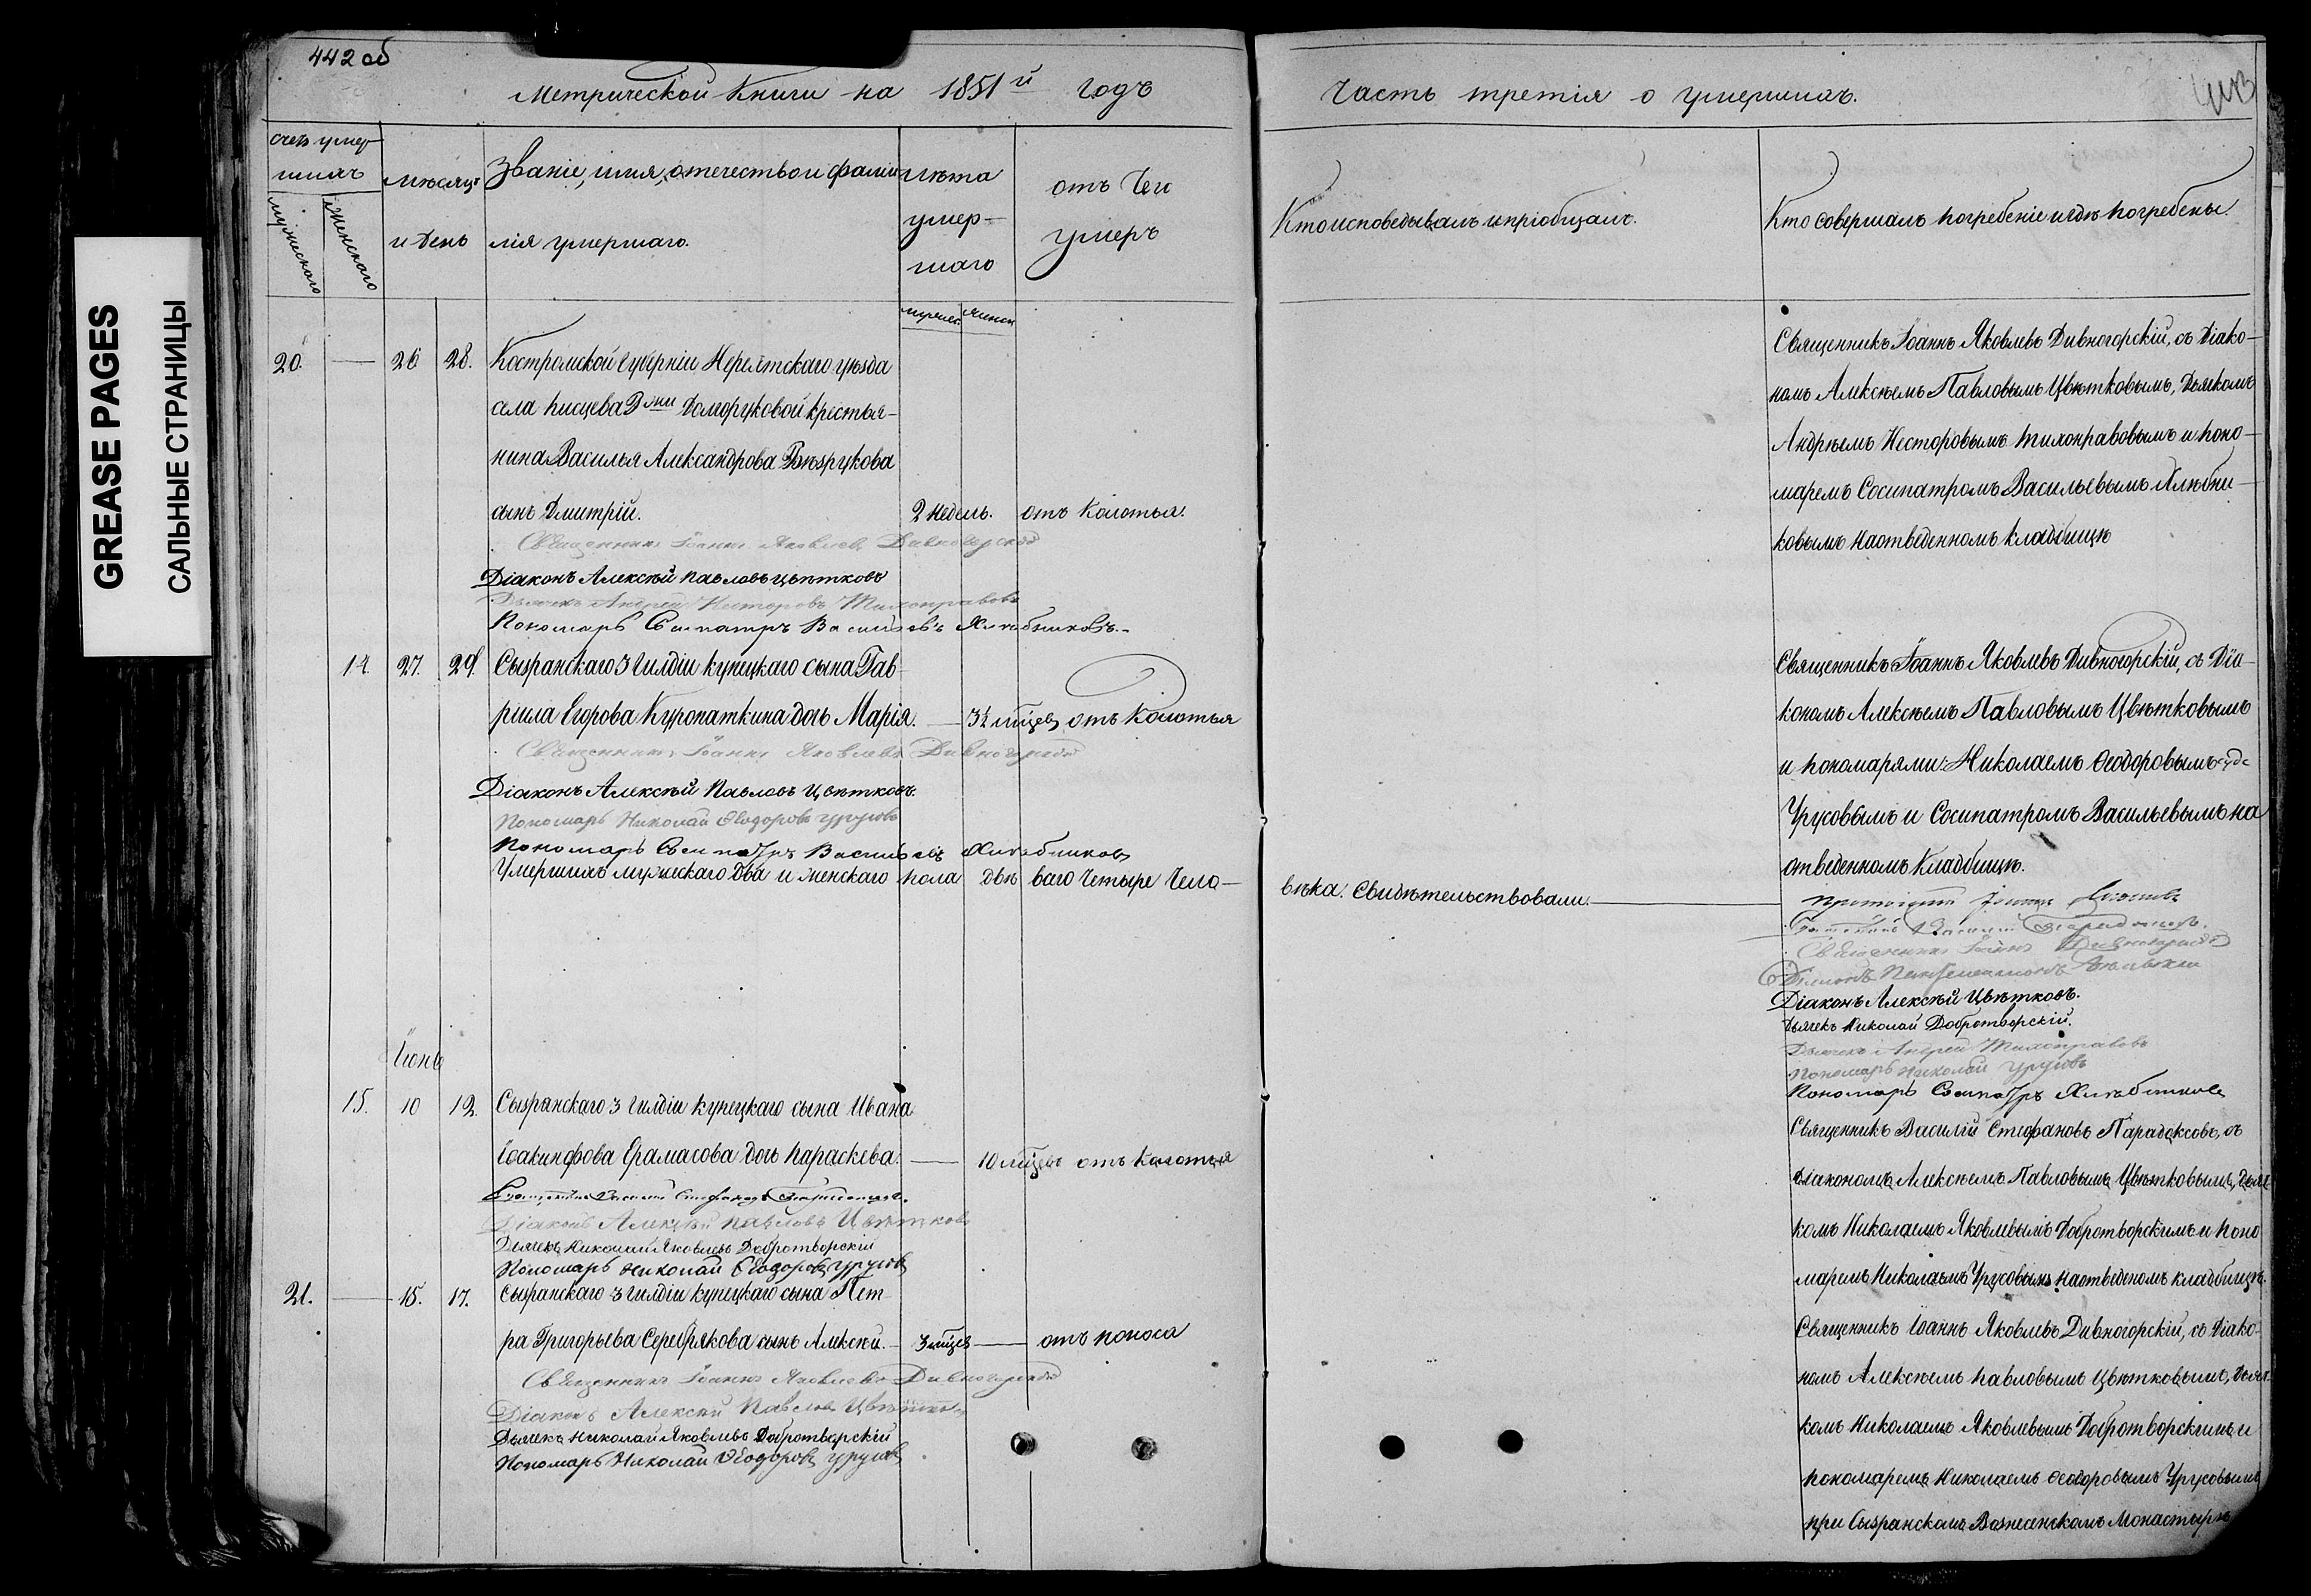 442 об
Метрической Книги на 1851й годъ
Часть третія о умершихъ.
443
GREASE PAGES
САЛЬНЫЕ СТРАНИЦЫ
Счетъ умер-
шихъ
мужескаго
женскаго
мѣсяцъ
и день
Званіе, имя, отечество и фами-
лія умершаго.
лѣта
умер-
шаго
мужеск.
женск.
отъ чего
умеръ
Кто исповедывалъ и пріобщалъ.
Кто совершалъ погребеніе и гдѣ погребены.
20. — 26 28. Костромской губерніи Нерехтскаго уѣзда
села писцева Долгоруковой крестья-
нина Василья Александрова Безрукова
сынъ Дмитрій. 2 недель. отъ колотья.
Священникъ Іоаннъ Яковлевъ Дивногорскій
Діаконъ Алексѣй павловъ цвѣтковъ
Дьячекъ Андрей Несторовъ Тихонравовъ
Пономарь Сосипатръ Васильевъ Хлѣбниковъ.
Священникъ Іоаннъ Яковлевъ Дивногорскій, съ Діако-
номъ Алексѣемъ Павловымъ Цвѣтковымъ, Дьячкомъ
Андрѣемъ Несторовымъ Тихонравовымъ и поно-
маремъ Сосипатромъ Васильевымъ Хлѣбни-
ковымъ на отведенномъ кладбищѣ
14. 27. 29. Сызранскаго 3 гилдіи купецкаго сына Гав-
риила Егорова Куропаткина дочь Марія. — 3½ мѣцев отъ колотья
Священникъ Іоаннъ Яковлевъ Дивногорскій
Діаконъ Алексѣй Павловъ Цвѣтковъ.
Пономарь Николай Ѳеодоровъ Урусовъ
Пономарь Сосипатръ Васильевъ Хлѣбниковъ
Священникъ Іоаннъ Яковлевъ Дивногорскій, съ Діа-
кономъ Алексѣемъ Павловымъ Цвѣтковымъ
и пономарями: Николаемъ Ѳеодоровымъ
Урусовымъ и Сосипатромъ Васильевымъ на
отведенномъ кладбищѣ.
Умершихъ мужескаго два и женскаго пола двѣ всего четыре чело-
вѣка. Свидѣтельствовали.
Священникъ Іоаннъ Дивногорскій
Діаконъ Алексѣй Цвѣтковъ.
Дьячекъ Николай Добротворскій.
Дьячекъ Андрей Тихонравовъ
Пономарь Николай Урусовъ
Пономарь Сосипатръ Хлѣбниковъ
Іюнь
15. 10 12. Сызранскаго 3 гилдіи купецкаго сына Ивана
Іоакинфова Ерамасова дочь Параскева. — 10 мѣцевъ отъ колотья
Священникъ Василій Стефановъ Парадоксовъ.
Діаконъ Алексѣй павловъ Цвѣтковъ
Дьячекъ Николай Яковлевъ Добротворскій
Пономарь Николай Ѳеодоровъ Урусовъ
Священникъ Василій Стефановъ Парадоксовъ, съ
діакономъ Алексѣемъ Павловымъ Цвѣтковымъ, дьяч-
комъ Николаемъ Яковлевымъ Добротворскимъ и поно
маремъ Николаемъ Урусовымъ на отведеномъ кладбищѣ.
21. — 15. 17. Сызранскаго 3 гилдіи купецкаго сына Пет-
ра Григорьева Серебрякова сынъ Алексѣй. 3 мѣцев — отъ поноса
Священникъ Іоаннъ Яковлевъ Дивногорскій
Діаконъ Алексѣй Павловъ Цвѣтковъ
Дьячекъ Николай Яковлевъ Добротворскій
Пономарь Николай Ѳеодоровъ Урусовъ
Священникъ Іоаннъ Яковлевъ Дивногорскій, съ Діако-
номъ Алексѣемъ павловымъ Цвѣтковымъ, дьяч-
комъ Николаемъ Яковлевымъ Добротворскимъ и
пономаремъ Николаемъ Ѳеодоровымъ Урусовымъ
при Сызранскомъ Вознесенскомъ Монастырѣ